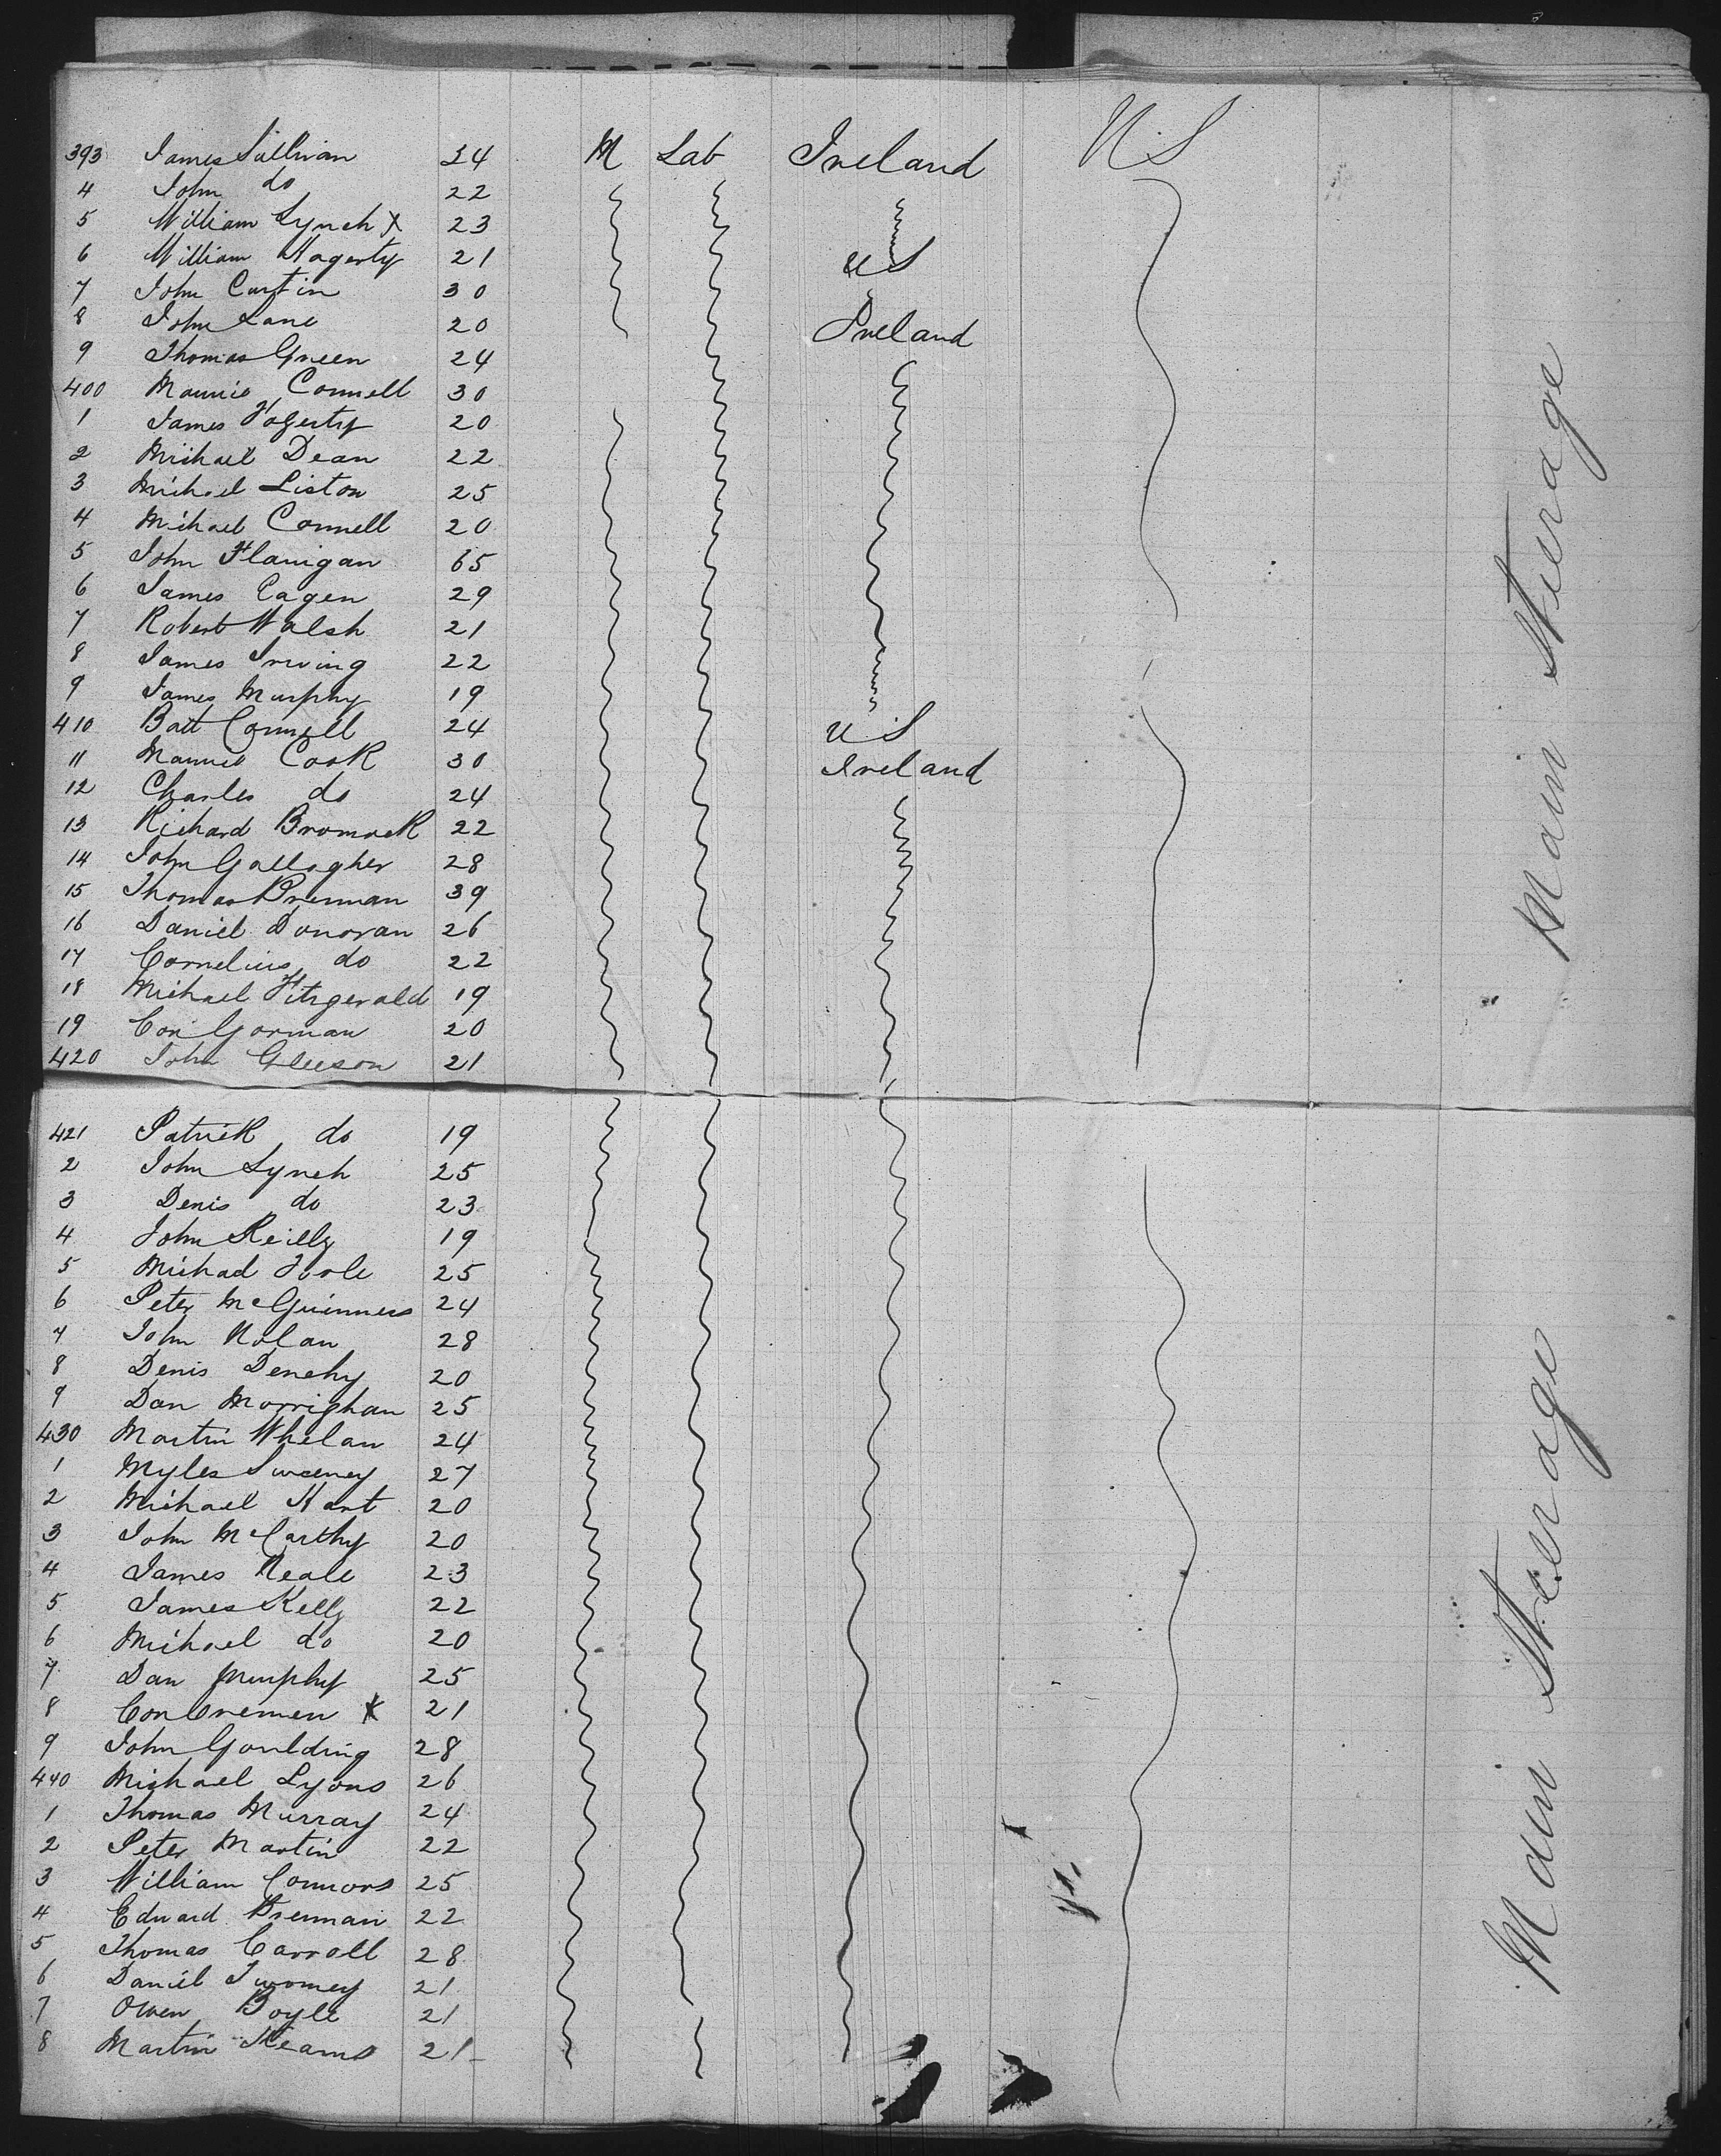 393 James Sullivan 24 M Lab Ireland U.S
4 John do 22
5 William Lynch X 23
6 William Hagerty 21 U S
7 John Curtin 30
8 John Lane 20 Ireland
9 Thomas Green 24
400 Maurice Connell 30
1 James Fogerty 20
2 Michael Dean 22
3 Michael Liston 25
4 Michael Connell 20
5 John Flanigan 65
6 James Eagen 29
7 Robert Walsh 21
8 James Irving 22
9 James Murphy 19
410 Batt Connell 24 U S
11 Maurice Cook 30 Ireland
12 Charles do 24
13 Richard 22
14 John Gallagher 28
15 Thomas Brennan 39
16 Daniel Donovan 26
17 Cornelius do 22
18 Michael Fitzgerald 19
19 Con Gorman 20
420 John Gleeson 21
Main Steerage
421 Patrick do 19
2 John Lynch 25
3 Denis do 23
4 John Reilly 19
5 Michael 25
6 Peter McGuinness 24
7 John Nolan 28
8 Denis Denehy 20
9 Dan Morrighan 25
430 Martin Whelan 24
1 Myles Sweeney 27
2 Michael Hart 20
3 John McCarthy 20
4 James Neale 23
5 James Kelly 22
6 Michael do 20
7 Dan Murphy 25
8 Con Cremen X 21
9 John Goulding 28
440 Michael Lyons 26
1 Thomas Murray 24
2 Peter Martin 22
3 William Connors 25
4 Edward Brennan 22
5 Thomas Carroll 28
6 Daniel Twomey 21
7 Owen Boyle 21
8 Martin Kearns 21
Main Steerage